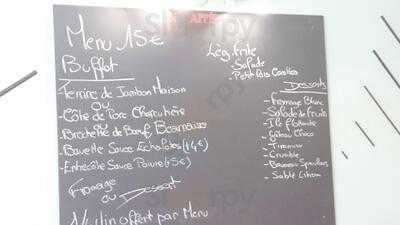 Menu 15€
Buffet
Terrine de Jambon Maison
ou
- Côte de Porc Charcutière
- Brochette de Boeuf Béarnaise
- Bavette Sauce Echalotes (+4€)
- Entrecôte Sauce Poivre (+5€)
Fromage
ou Dessert
1/4 vin offert par Menu
Lég. frite
- Salade
- Petit Pois Carottes
Desserts
- Fromage Blanc
- Salade de Fruits
- Ile flottante
- Gâteau Choco
- Tiramisu
- Crumble
- Sablé Citron